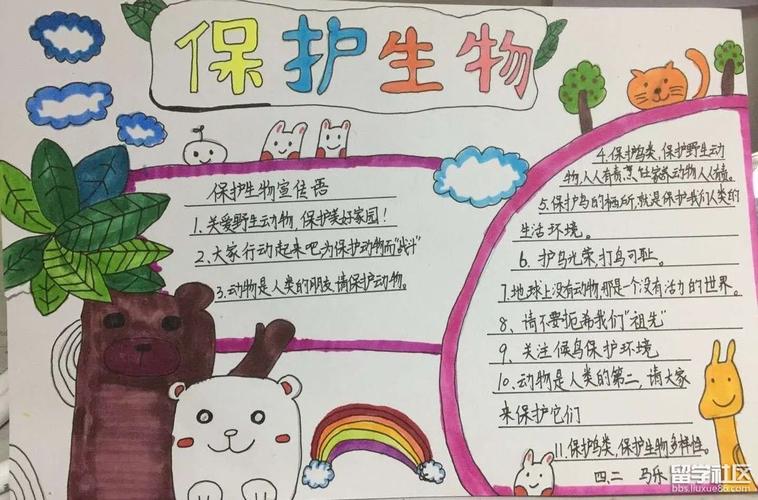 保护生物
保护生物宣传语
1.关爱野生动物,保护美好家园!
2.大家行动起来吧,为保护动物而"战斗"
3.动物是人类的朋友,请保护动物。
4.保护鸟类,保护野生动
物,人人有责
动物人人有
5.保护鸟的栖所,就是保护我们人类的
生活环境。
6.护鸟光荣,打鸟可耻。
7.地球上没有动物,那是一个没有活力的世界。
8、请不要扼杀我们"祖先"
9、关注候鸟保护环境
10、动物是人类的第二,请大家
来保护它们
11.保护鸟类,保护生物多样性。
四、二 马乐
留学社区
bbs.liuxue86.com